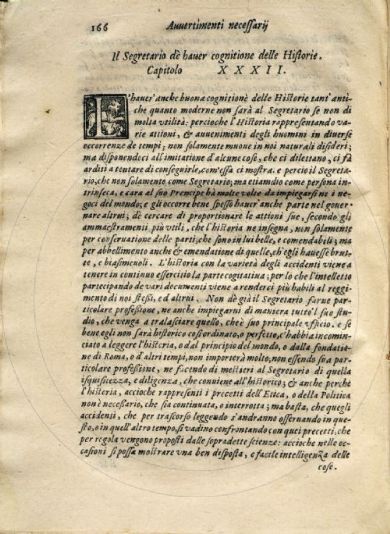 166 Auuertimenti necessarij
Il Segretario dè hauer cognitione delle Historie.
Capitolo XXXII.
L'hauer' anche buona cognitione delle Historie tant' anti-
che quanto moderne non sarà al Segretario se non di
molta vtilità; percioche l'Historia rappresentando va-
rie attioni, & auuenimenti degli huomini in diuerse
occorrenze de tempi; non solamente muoue in noi naturali disideri;
ma disponendoci all'imitatione d'alcune cose, che ci dilettano, ci fà
arditi a tentare di conseguirle, com'essa ci mostra. e perciò il Segreta-
rio, che non solamente come Segretario; ma etiamdio come persona in-
trinseca, e cara al suo Prencipe hà molte volte da impiegarsi ne i ne-
gocij del mondo; e gli occorre bene spesso hauer' anche parte nel gouer-
nare altrui; dè cercare di proportionare le attioni sue, secondo gli
ammaestramenti più vtili, che l'historia ne insegna, non solamente
per conseruatione delle parti, che sono in lui belle, e comendabili; ma
per abbellimento anche & emendatione di quelle, ch'egli hauesse brut-
te, e biasimeuoli. L'historia con la varietà degli accidenti viene a
tenere in continuo essercitio la parte cogitatiua; per lo che l'intelletto
partecipando de vari documenti viene a renderci più habili al reggi-
mento di noi stessi, ed altrui. Non dè già il Segretario farne parti-
colare professione, ne anche impiegarsi di maniera tutto'l suo stu-
dio, che venga a tralasciare quello, ch'è suo principale vfficio. e se
bene egli non sarà historico così ordinato, e perfetto, c'habbia incomin-
ciato a leggere l'historia, o dal principio del mondo, o dalla fondatio-
ne di Roma, o d'altri tempi, non importerà molto, non essendo sua par-
ticolare professione, ne facendo di mestieri al Segretario di quella
isquisitezza, e diligenza, che conuiene all'historico; & anche perche
l'historia, accioche rappresenti i precetti dell'Etica, o della Politica
non è necessario, che sia continuata, o interrotta; ma basta, che quegli
accidenti, che per trascorso leggendo s'andranno osseruando in que-
sto, o in quell'altro tempo, si vadino confrontando con quei precetti, che
per regola vengono proposti dalle sopradette scienze: accioche nelle oc-
casioni si possa mostrare vna ben disposta, e facile intelligenza delle
cose.